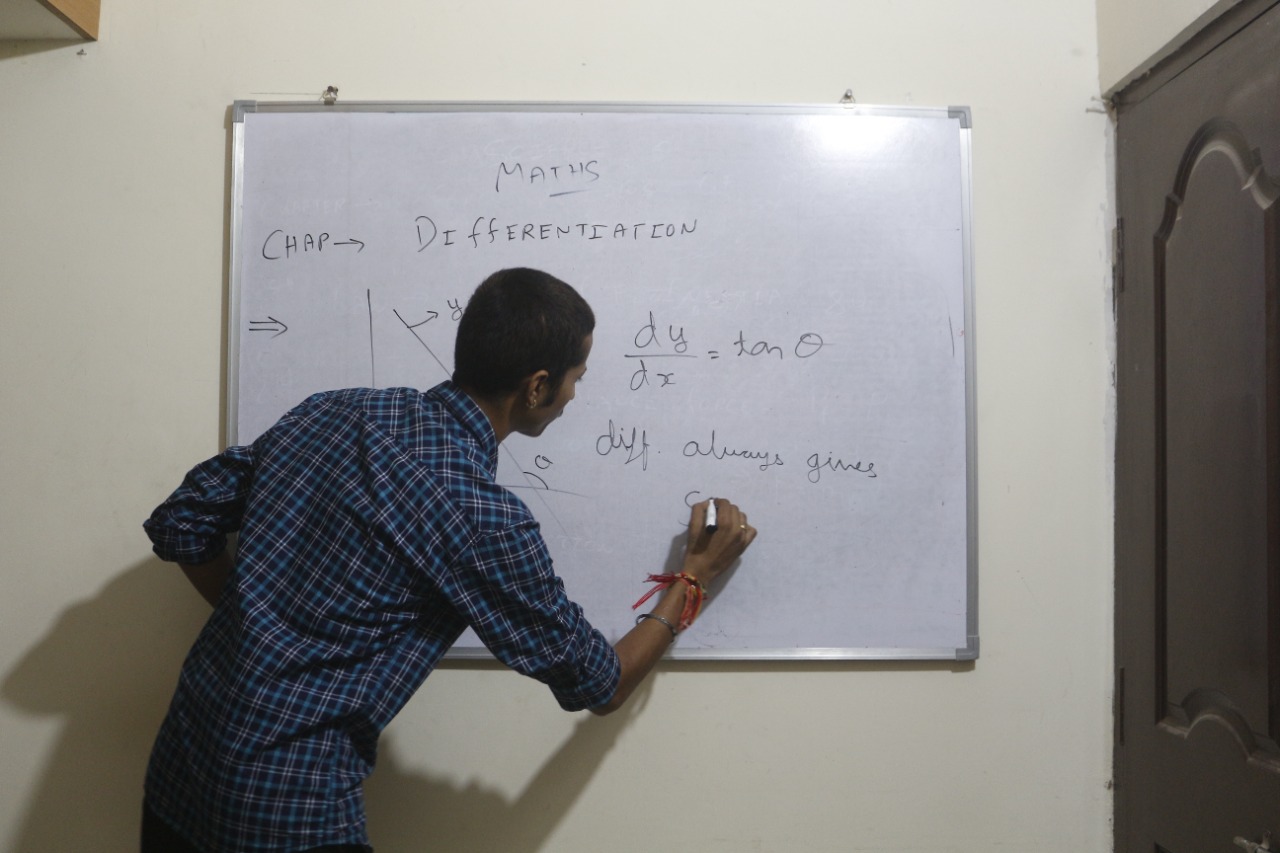 MATHS
CHAP → DIffERENTIATION
⇒
y
dy/dx = tan θ
diff. always gives